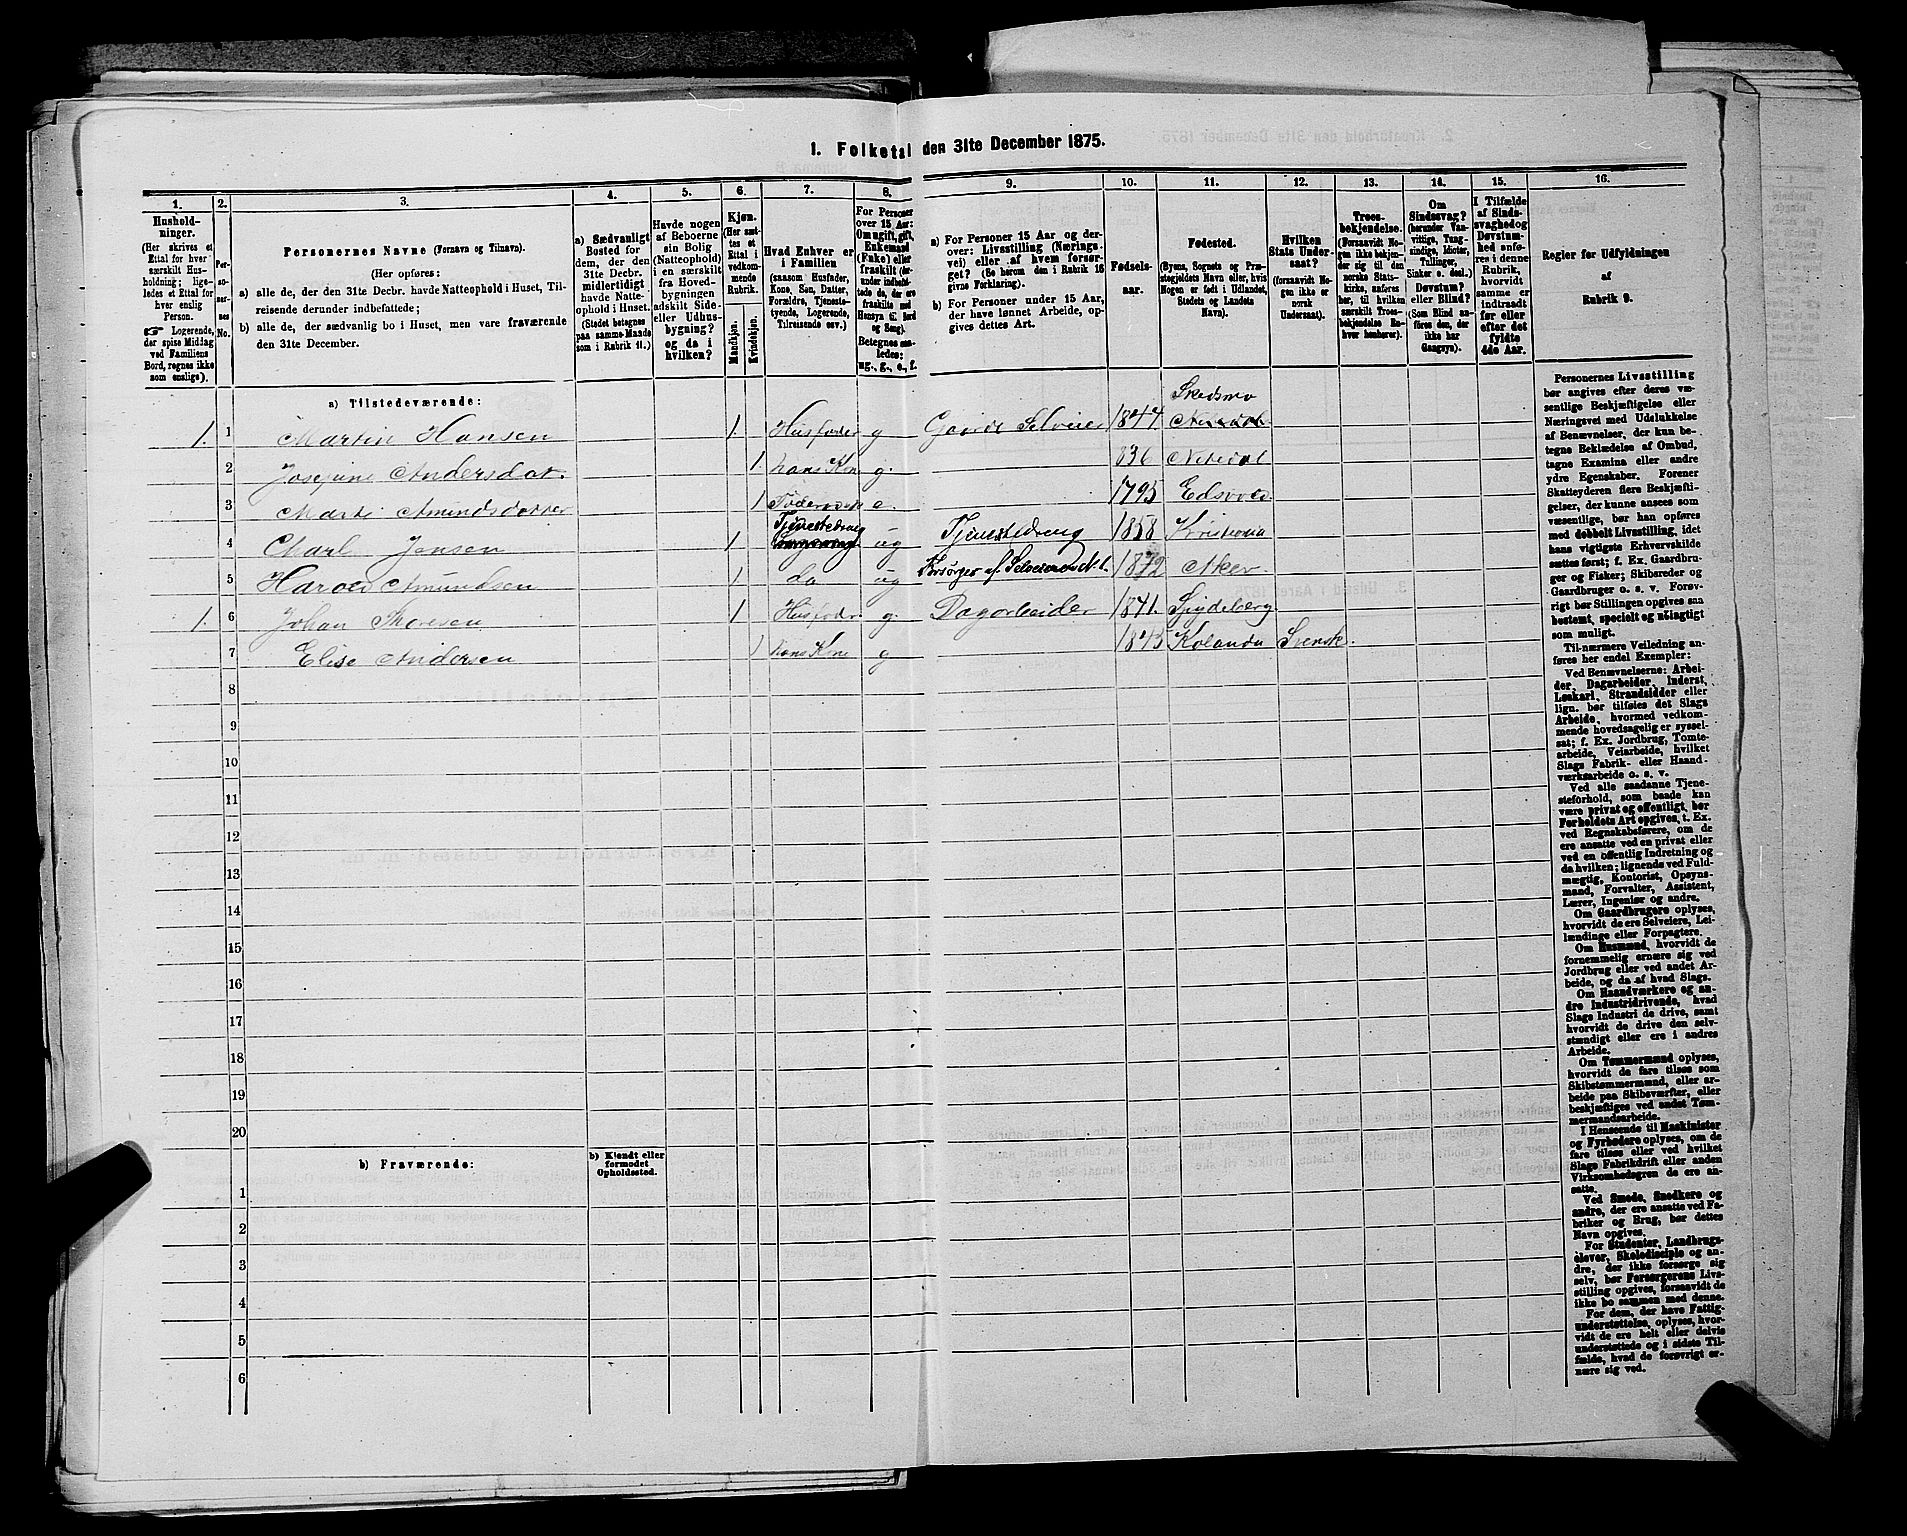 1. Folketal den 31te December 1875.
1.
Hushold-
ninger.
(Her skrives et
Ettal for hver
særskilt Hus-
holdning; lige-
ledes et Ettal for
hver enslig
Person.
☞ Logerende,
der spise Middag
ved Familiens
Bord, regnes ikke
som enslige).
2.
Per-
so-
ner-
nes
No.
3.
Personernes Navne (Fornavn og Tilnavn).
(Her opføres:
a) alle de, der den 31te Decbr. havde Natteophold i Huset, Til-
reisende derunder indbefattede;
b) alle de, der sædvanlig bo i Huset, men vare fraværende
den 31te December.
4.
a) Sædvanligt
Bosted for
dem, der den
31te Decbr.
midlertidigt
havde Natte-
ophold i Huset.
(Stedet betegnes
paa samme Maade
som i Rubrik 11.)
5.
Havde nogen
af Beboerne
sin Bolig
(Natteophold)
i en særskilt
fra Hoved-
bygningen
adskilt Side-
eller Udhus-
bygning?
og da i
hvilken?
6.
Kjøn.
(Her sæt-
tes et
Ettal i
vedkom-
mende
Rubrik.
Mandkjøn.
Kvindekjøn.
7.
Hvad Enhver er
i Familien
(saasom Husfader,
Kone, Søn, Datter,
Forældre, Tjeneste-
tyende, Logerende,
Tilreisende osv.)
8.
For Personer
over 15 Aar:
Om ugift, gift,
Enkemand
(Enke) eller
fraskilt (der-
under indbefat-
tede de, der ere
fraskilte med
Hensyn til Bord
og Seng).
Betegnes saa-
ledes:
ug., g., e., f.
9.
a) For Personer 15 Aar og der-
over: Livsstilling (Nærings-
vei) eller af hvem forsør-
get? (Se herom den i Rubrik 16
givne Forklaring).
b) For Personer under 15 Aar,
der have lønnet Arbeide, op-
gives dettes Art.
10.
Fødsels-
aar.
11.
Fødested.
(Byens, Sognets og Præ-
stegjeldets Navn eller, hvis
Nogen er født i Udlandet,
Stedets og Landets
Navn).
12.
Hvilken
Stats Under-
saat?
(forsaavidt No-
gen ikke er
norsk
Undersaat).
13.
Troes-
bekjendelse.
(Forsaavidt No-
gen ikke bekjen-
der sig til den
norske Stats-
kirke, anføres
her, til hvilken
særskilt Troes-
bekjendelse En-
hver henhører).
14.
Om
Sindssvag?
(herunder Van-
vittige, Tung-
sindige, Idioter,
Tullinger,
Sinker o. desl.)
Døvstum?
eller Blind?
(Som Blind an-
føres den, der
ikke har
Gangsyn).
15.
I Tilfælde
af Sinds-
svaghed og
Døvstum-
hed anfø-
res i denne
Rubrik,
hvorvidt
samme er
indtraadt
før eller
efter det
fyldte
4de Aar.
16.
Regler for Udfyldningen
af
Rubrik 9.
a) Tilstedeværende:
Skedsmo
1. 1 Martin Hansen 1. Husfader g Gaards Selveier 1844 Nitedal
2 Josefine Andersdat. 1. hans Kone g. 836 Nitedal
3 Marti Amundsdatter 1 e. 1795 Edsvold
Tjenestedreng
4 Charl Jensen 1 ug Tjenestedreng 1858 Kristiania
5 Harold Amundsen 1 do ug Forsørges af Selveieren No 1. 1872 Aker.
1. 6 Johan Thoresen 1 Husfader g. Dagarbeider 1841. Spydeberg
7 Elise Andersen 1 hans Kone g 1845 Kolanda Svensk.
8
9
10
11
12
13
14
15
16
17
18
19
20
b) Fraværende:
b) Kjendt eller
formodet
Opholdssted.
1
2
3
4
5
6
Personernes Livsstilling
bør angives efter deres væ-
sentlige Beskjæftigelse eller
Næringsvei med Udelukkelse
af Benævnelser, der kun be-
tegne Beklædelse af Ombud,
tagne Examina eller andre
ydre Egenskaber. Forener
Skatteyderen flere Beskjæfti-
gelser, der kunne ansees som
væsentlige, bør han opføres
med dobbelt Livsstilling, idet
hans vigtigste Erhvervskilde
sættes først; f. Ex. Gaardbru-
ger og Fisker; Skibsreder og
Gaardbruger o. s. v. Forøv-
rigt bør Stillingen opgives saa
bestemt, specielt og nøiagtigt
som muligt.
Til nærmere Veiledning an-
føres her endel Exempler:
Ved Benævnelserne: Arbei-
der, Dagarbeider, Inderst,
Løskarl, Strandsidder eller
lign. bør tilføies det Slags
Arbeide, hvormed vedkom-
mende hovedsagelig er syssel-
sat; f. Ex. Jordbrug, Tomte-
arbeide, Veiarbeide, hvilket
Slags Fabrik- eller Haand-
værksarbeide o. s. v.
Ved alle saadanne Tjene-
steforhold, som baade kan
være privat og offentligt, bør
Forholdets Art opgives, t. Ex.
ved Regnskabsførere, om de
ere ansatte ved en privat eller
ved en offentlig Indretning og
da hvilken; lignende ved Fuld-
mægtig, Kontorist, Opsyns-
mand, Forvalter, Assistent,
Lærer, Ingeniør og andre.
Om Gaardbrugere oplyses,
hvorvidt de ere Selveiere, Lei-
lændinge eller Forpagtere.
Om Husmænd, hvorvidt de
fornemmelig ernære sig ved
Jordbrug eller ved andet Ar-
beide, og da af hvad Slags.
Om Haandværkere og an-
dre Industridrivende, hvad
Slags Industri de drive, samt
hvorvidt de drive den selv-
stændigt eller ere i andres
Arbeide.
Om Tømmermænd oplyses,
hvorvidt de fare tilsøs som
Skibstømmermænd, eller ar-
beide paa Skibsværfter, eller
beskjæftiges ved andet Tøm-
mermandsarbeide.
I Henseende til Maskinister
og Fyrbødere oplyses, om de
fare tilsøs eller ved hvilket
Slags Fabrikdrift eller anden
Virksomhedsgren de ere an-
satte.
Ved Smede, Snedkere og
andre, der ere ansatte ved Fa-
briker og Brug, bør dettes
Navn opgives.
For Studenter, Landbrugs-
elever, Skoledisciple og an-
dre, der ikke forsørge sig
selv, bør Forsørgerens Livs-
stilling opgives, forsaavidt de
ikke bo sammen med denne.
For dem, der have Fattig-
understøttelse, oplyses, hvor-
vidt de ere helt eller delvis
understøttede og i sidste Til-
fælde, hvad de forøvrigt er-
nære sig ved.